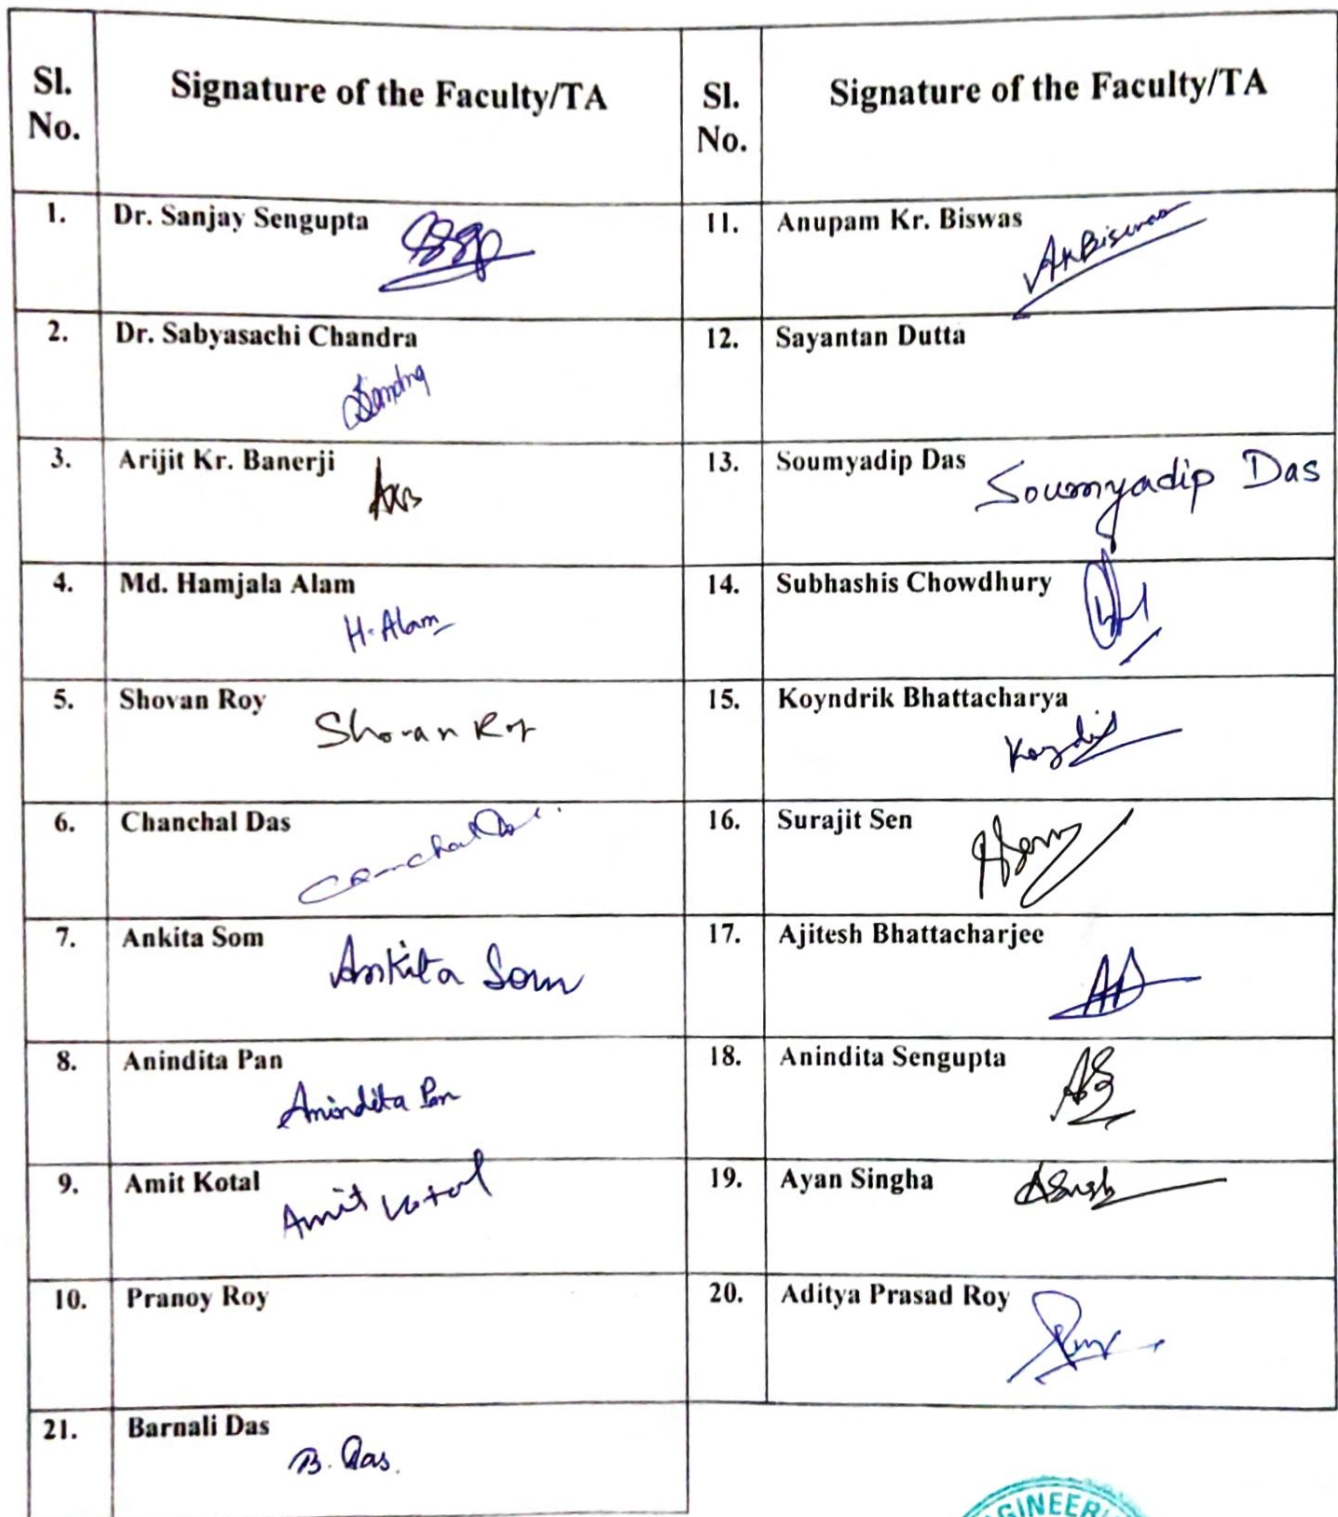 Sl. No.
Signature of the Faculty/TA
Sl. No.
Signature of the Faculty/TA
1.
Dr. Sanjay Sengupta
11.
Anupam Kr. Biswas
AKBiswas
2.
Dr. Sabyasachi Chandra
12.
Sayantan Dutta
3.
Arijit Kr. Banerji
AKB
13.
Soumyadip Das
Soumyadip Das
4.
Md. Hamjala Alam
H. Alam
14.
Subhashis Chowdhury
5.
Shovan Roy
Shovan Roy
15.
Koyndrik Bhattacharya
6.
Chanchal Das
Chanchal Das
16.
Surajit Sen
SSen
7.
Ankita Som
Ankita Som
17.
Ajitesh Bhattacharjee
8.
Anindita Pan
Anindita Pan
18.
Anindita Sengupta
AS
9.
Amit Kotal
Amit Kotal
19.
Ayan Singha
10.
Pranoy Roy
20.
Aditya Prasad Roy
21.
Barnali Das
B. Das.